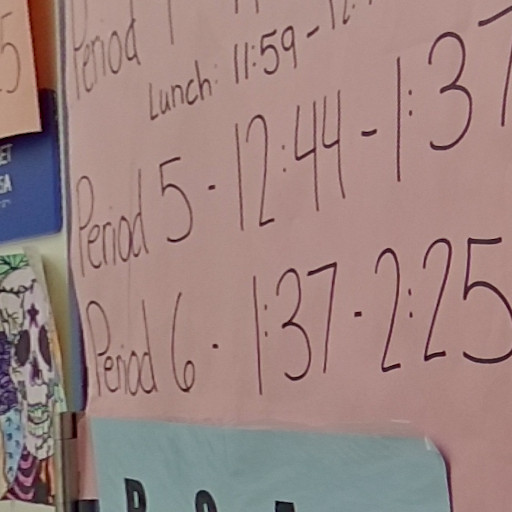 Period
Lunch: 11:59 -
Period 5 - 12:44 - 1:37
Period 6 - 1:37 - 2:25